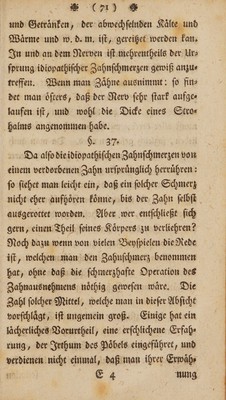 ❀ (71) ❀
und Getränken, der abwechselnden Kälte und
Wärme und w. d. m. ist, gereitzet werden kan.
In und an dem Nerven ist mehrentheils der Ur-
sprung idiopathischer Zahnschmerzen gewiß anzu-
treffen. Wenn man Zähne ausnimmt: so fin-
det man öfters, daß der Nerv sehr stark aufge-
laufen ist, und wohl die Dicke eines Stro-
halms angenommen habe.
§. 37.
Da also die idiopathischen Zahnschmerzen von
einem verdorbenen Zahn ursprünglich herrühren:
so siehet man leicht ein, daß ein solcher Schmerz
nicht eher aufhören könne, bis der Zahn selbst
ausgerottet worden. Aber wer entschließt sich
gern, einen Theil seines Körpers zu verliehren?
Noch dazu wenn von vielen Beyspielen die Rede
ist, welchen man den Zahnschmerz benommen
hat, ohne daß die schmerzhafte Operation des
Zahnausnehmens nöthig gewesen wäre. Die
Zahl solcher Mittel, welche man in dieser Absicht
vorschlägt, ist ungemein groß. Einige hat ein
lächerliches Vorurtheil, eine erschlichene Erfah-
rung, der Irthum des Pöbels eingeführt, und
verdienen nicht einmal, daß man ihrer Erwäh-
E 4 nung